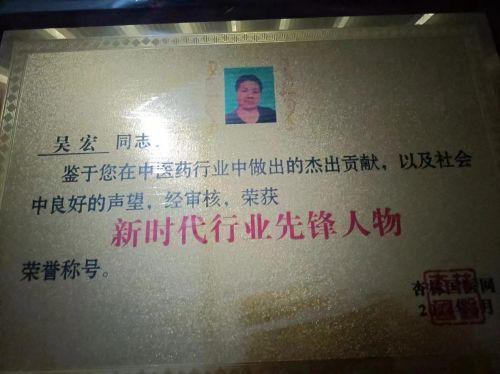 吴宏 同志:
鉴于您在中医药行业中做出的杰出贡献，以及社会
中良好的声望，经审核，荣获
新时代行业先锋人物
荣誉称号。
杏林国医网
月